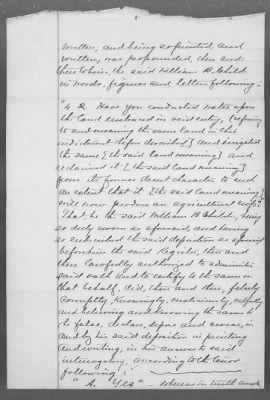 written, and being so printed and
written, was propounded, then and
there to him, the said William B. Child
in words, figures and letters following:
"4 Q. Have you conducted water upon
the land embraced in said entry, [referring
to and meaning the same land in this
indictment before described] and irrigated
the same [the said land meaning] and
reclaimed it [the said land meaning]
from its former desert character to such
an extent that it [the said land meaning]
will now produce an agricultural crop?"
That, he the said William B. Child, being
so duly sworn as aforesaid, and having
so subscribed the said deposition as aforesaid
before him the said Register, then and
there lawfully authorized to administer
said oath and to certify to the same in
that behalf, did, then and there, falsely
corruptly, knowingly, maliciously, wilfully
and believing and knowing the same to
be false, declare, depose and swear, in
and by his said deposition in printing
and writing, in his answer to said
interrogatory, according to the tenor
following:
"A. Yes" whereas in truth and